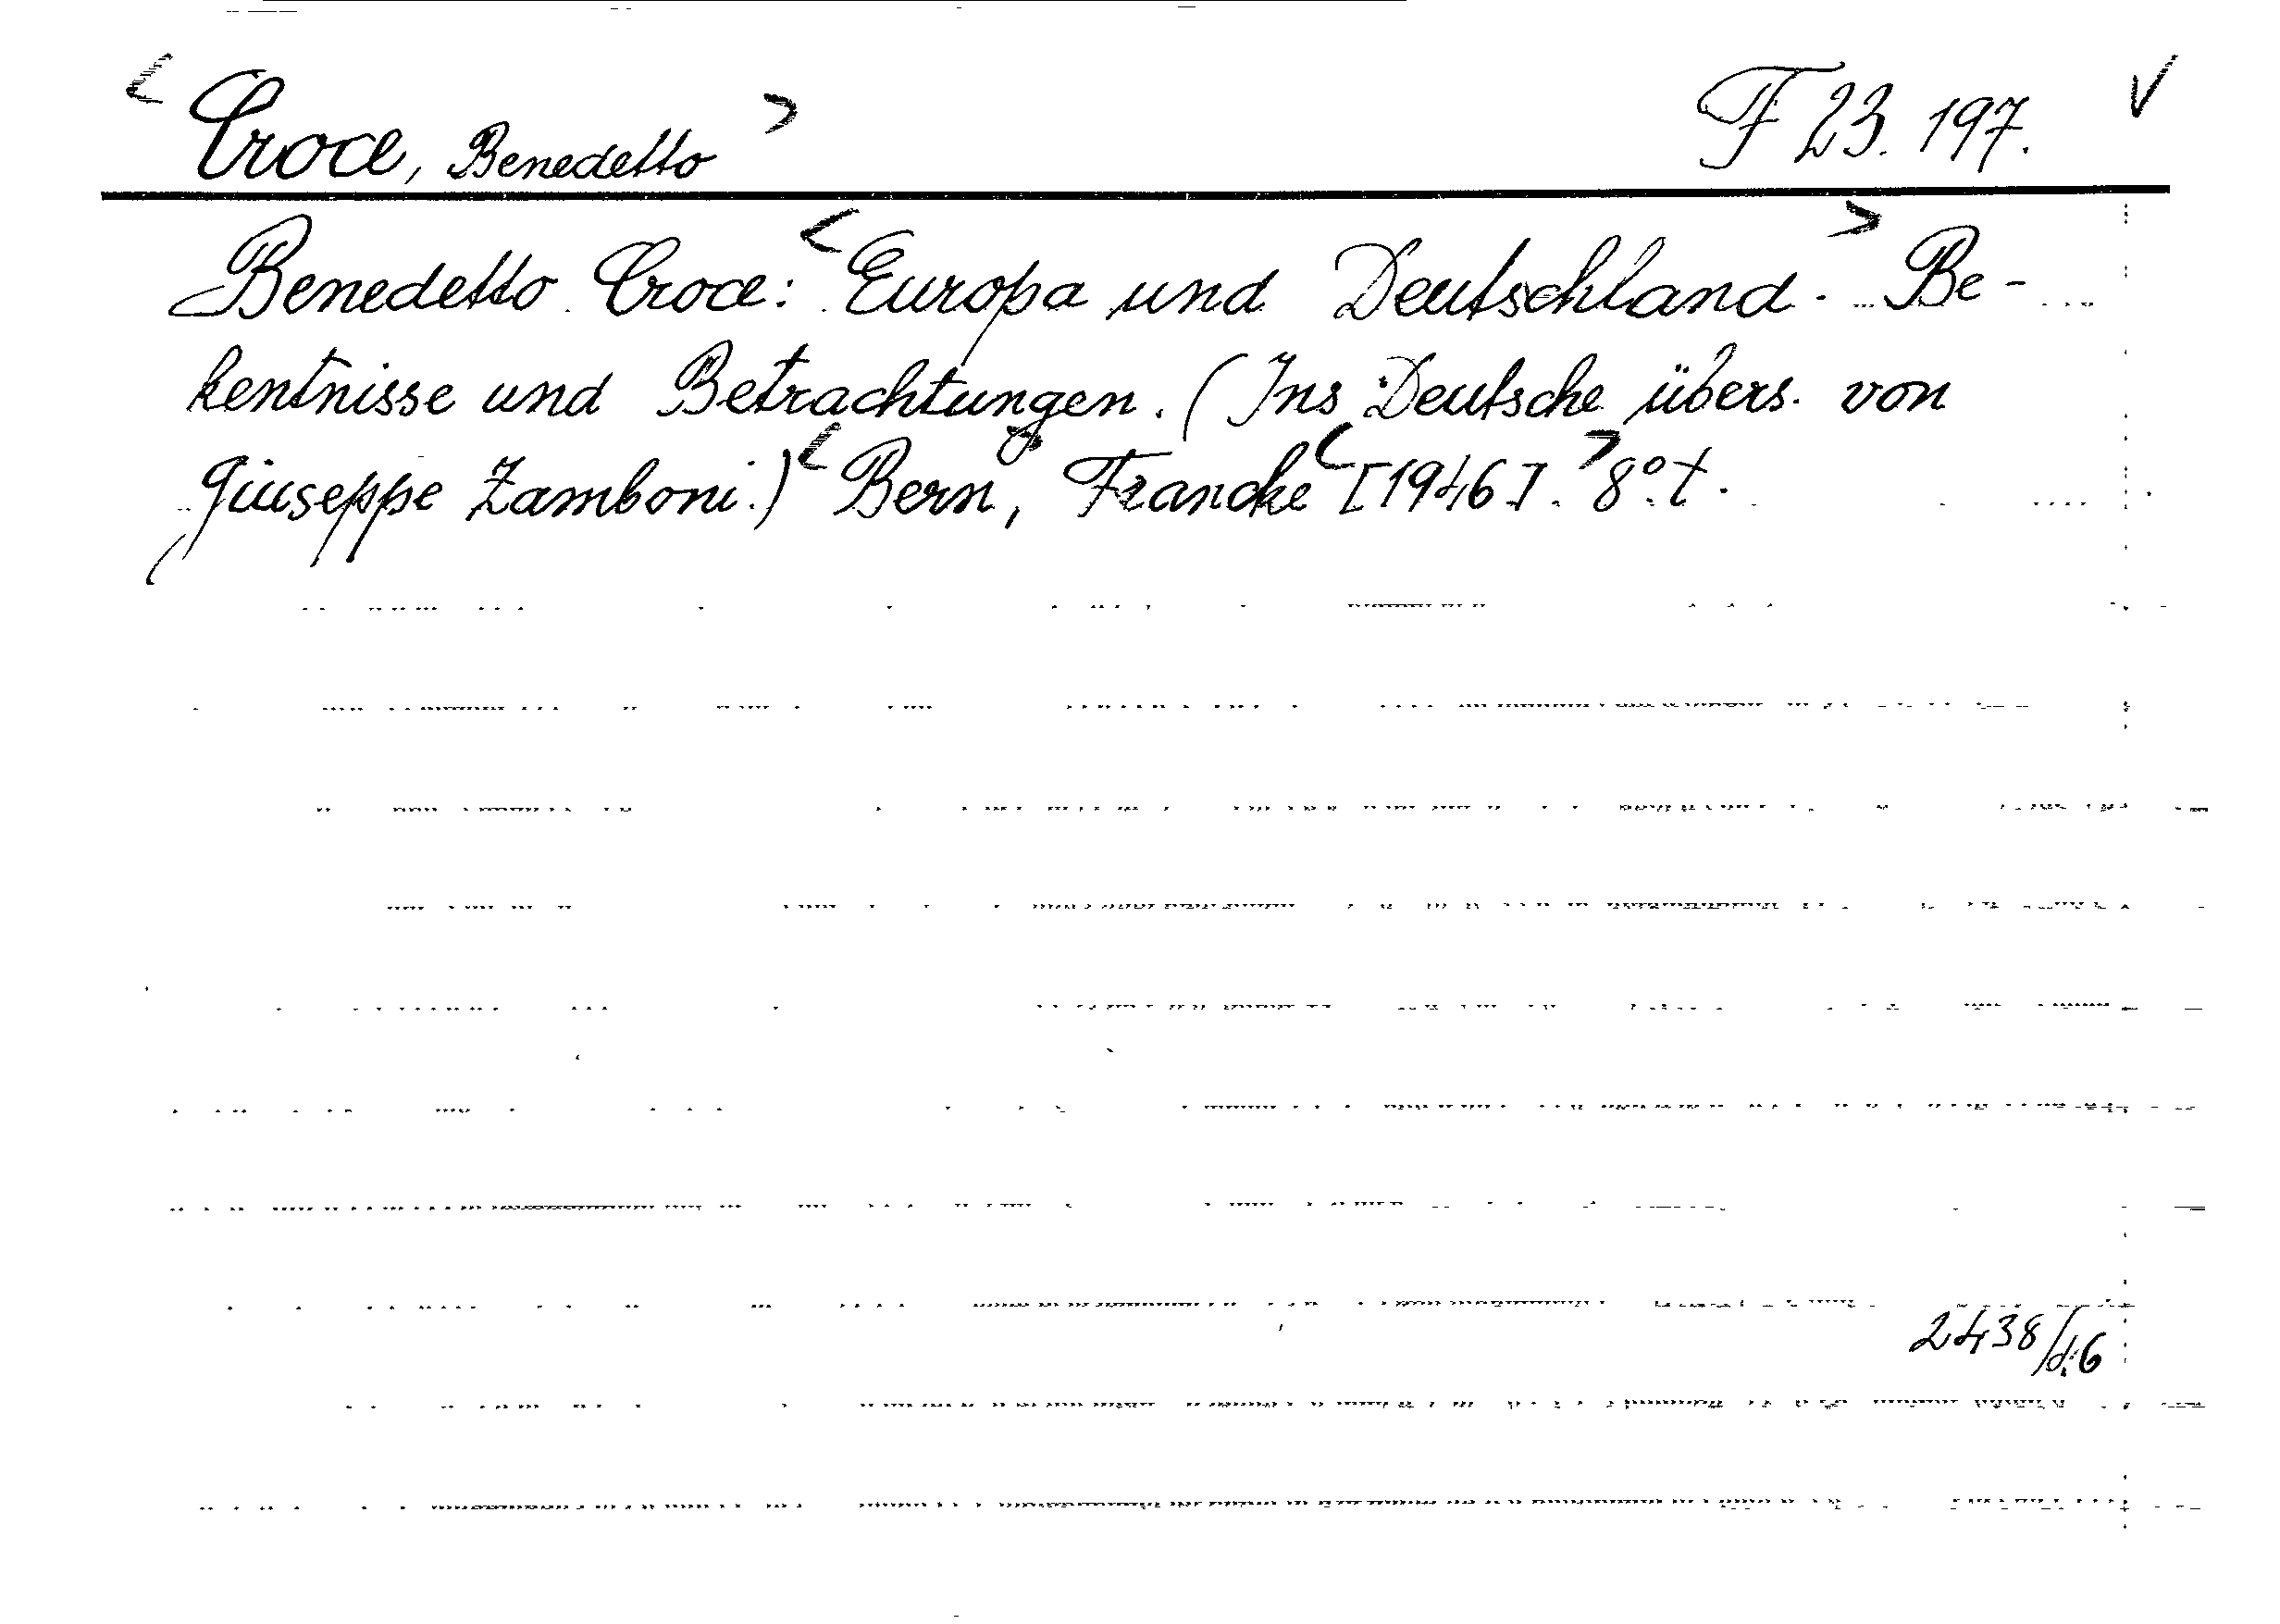 < Croce, Benedetto > F 23. 197. ✓
Benedetto Croce: < Europa und Deutschland. > Be-
kentnisse und Betrachtungen. (Ins Deutsche übers. von
Giuseppe Zamboni.) < Bern, Francke < [1946]. > 8°. t.
2438/46